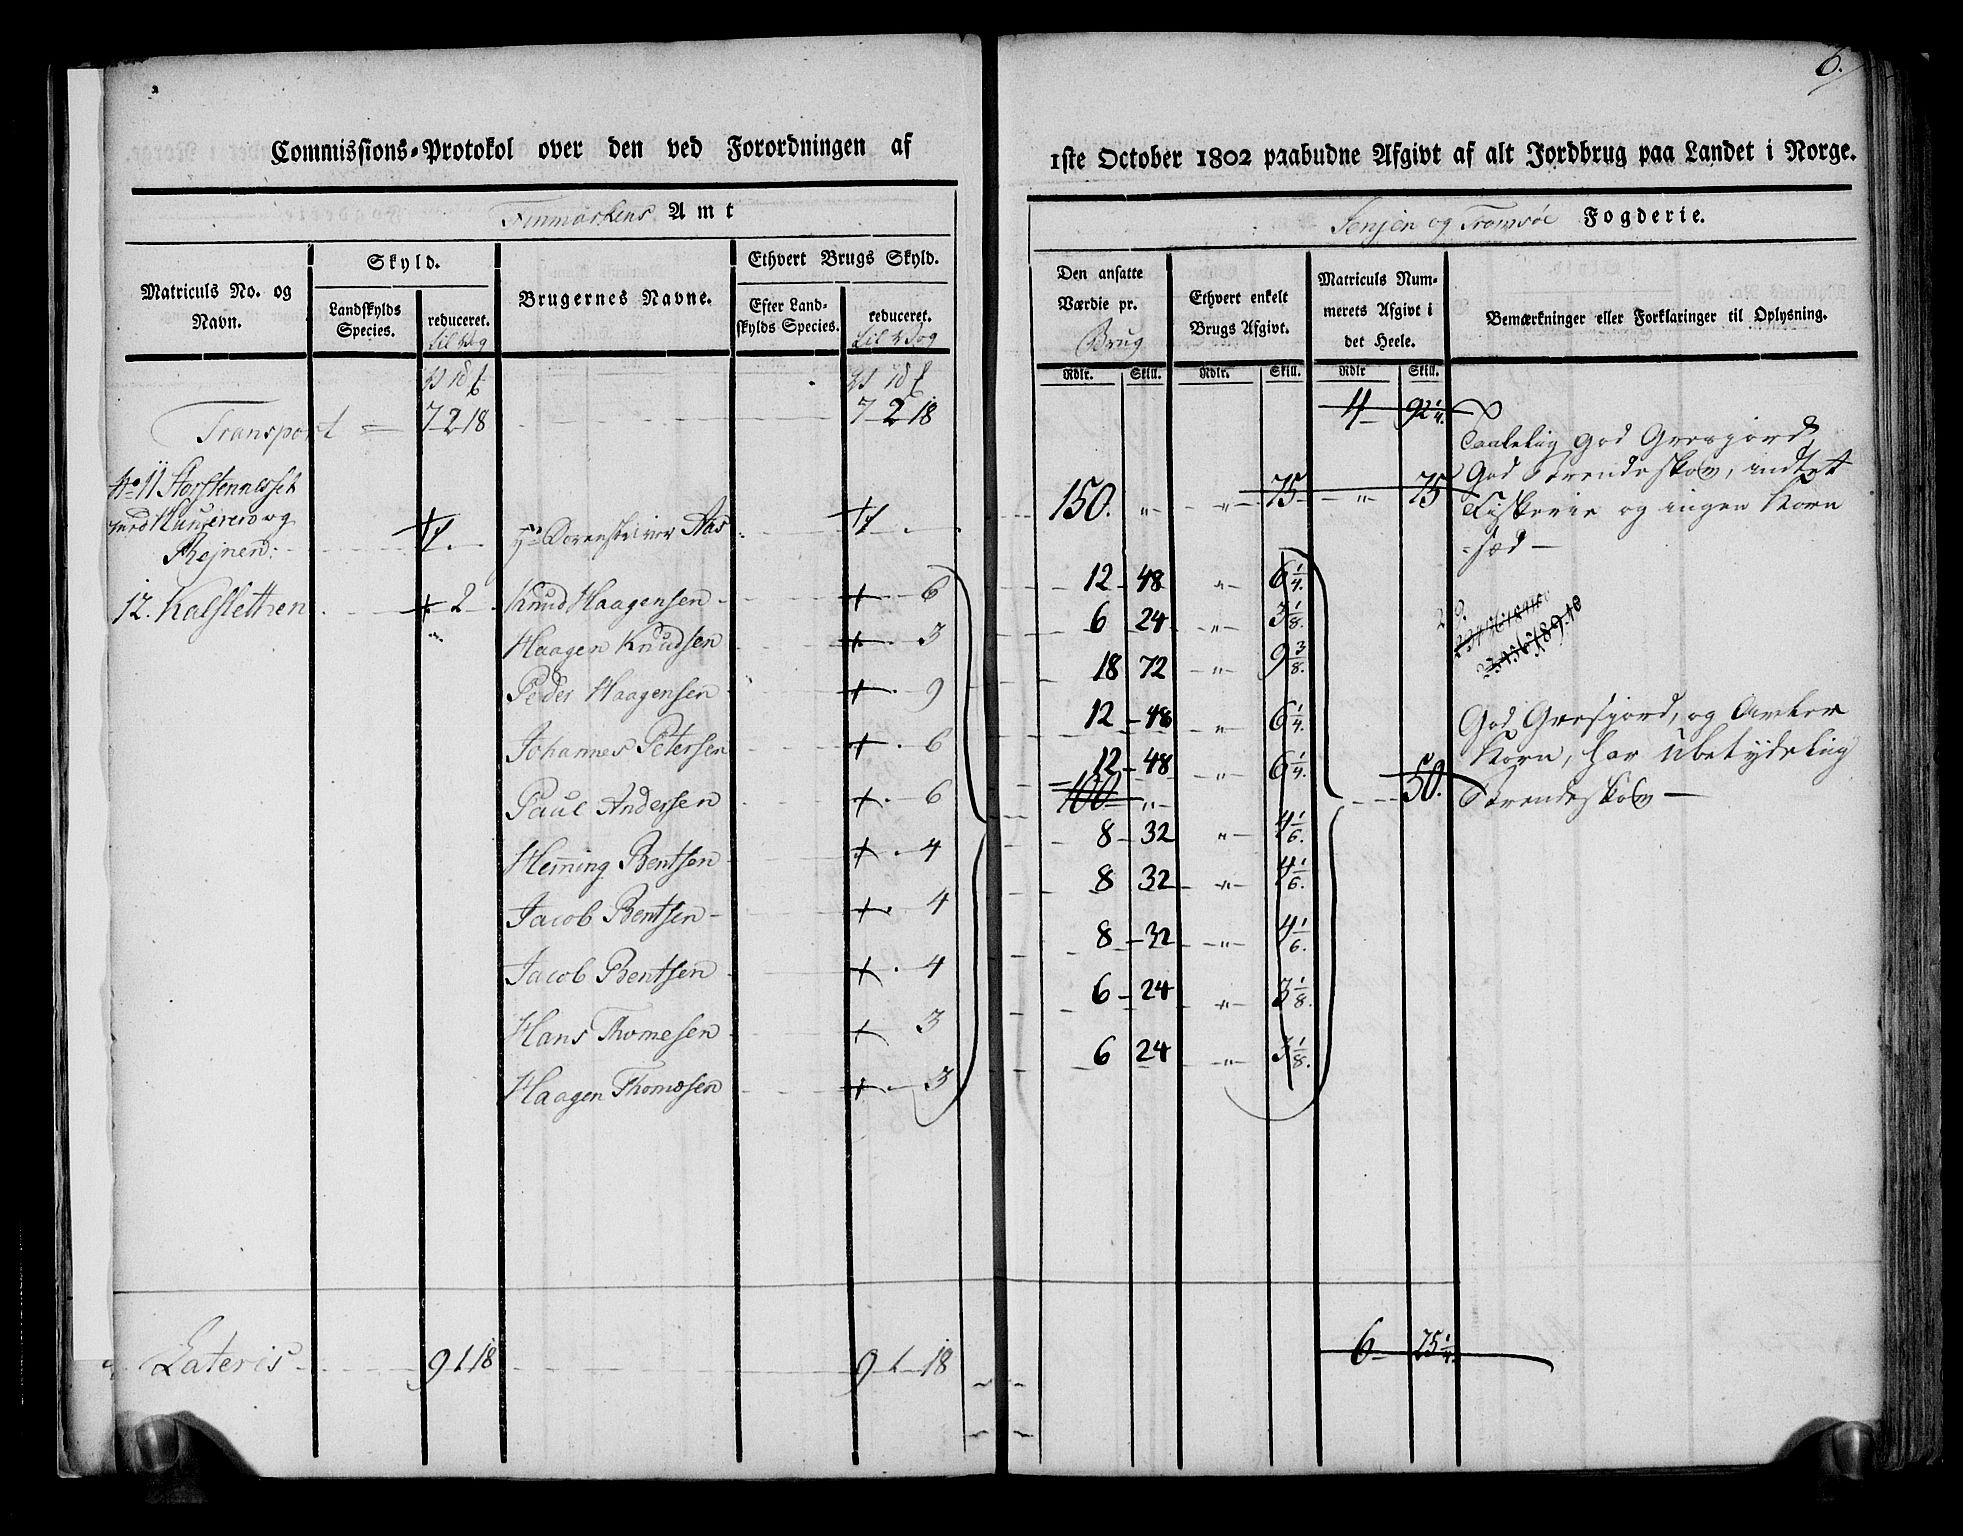 6.
Commissions-Protokol over den ved Forordningen af 1ste October 1802 paabudne Afgivt af alt Jordbrug paa Landet i Norge.
Finmarkens Amt
Senjen og Tromsøe Fogderie.
Matriculs No. og Navn.
Skyld.
Landskylds Species.
reduceret.
til Vog
Brugernes Navne.
Ethvert Brugs Skyld.
Efter Landskylds Species.
reduceret.
til Vog
Den ansatte Værdie pr. Brug
Ethvert enkelt Brugs Afgivt.
Matriculs Nummerets Afgivt i det Heele.
Bemærkninger eller Forklaringer til Oplysning.
Rdlr. Skill. Rdlr. Skill. Rdlr Skill.
Transport 7 2 18 7 2 18 4 92 1/4.
No 11 Storstennesset
med Kunsereid og
Rejnen. 1 Sorenskriver Aas 1 150. " " 75 " 75
Taalelig god Græsjord,
God Brendeskov, indtet
Fiskerie og ingen Korn
sæd
12. Kalslethen 2 Knud Haagensen 6 12 48 " 6 1/4.
Haagen Knudsen 3 6 24 " 3 1/8.
Peder Haagensen 9 18 72 " 9 3/8.
Johannes Petersen 6 12 48 " 6 1/4.
Paul Andersen 6 12 48 " 6 1/4.
100 " 50.
God Græsjord, og Avler
Korn, har Ubetydelig
Brendeskov
Heming Bentsen 4 8 32 " 4 1/6.
Jacob Bentsen 4 8 32 " 4 1/6.
Jacob Bentsen 4 8 32 " 4 1/6.
Hans Thomesen 3 6 24 " 3 1/8.
Haagen Thomesen 3 6 24 " 3 1/8.
Lateris 9 1 18 9 1 18 6 25 1/4.